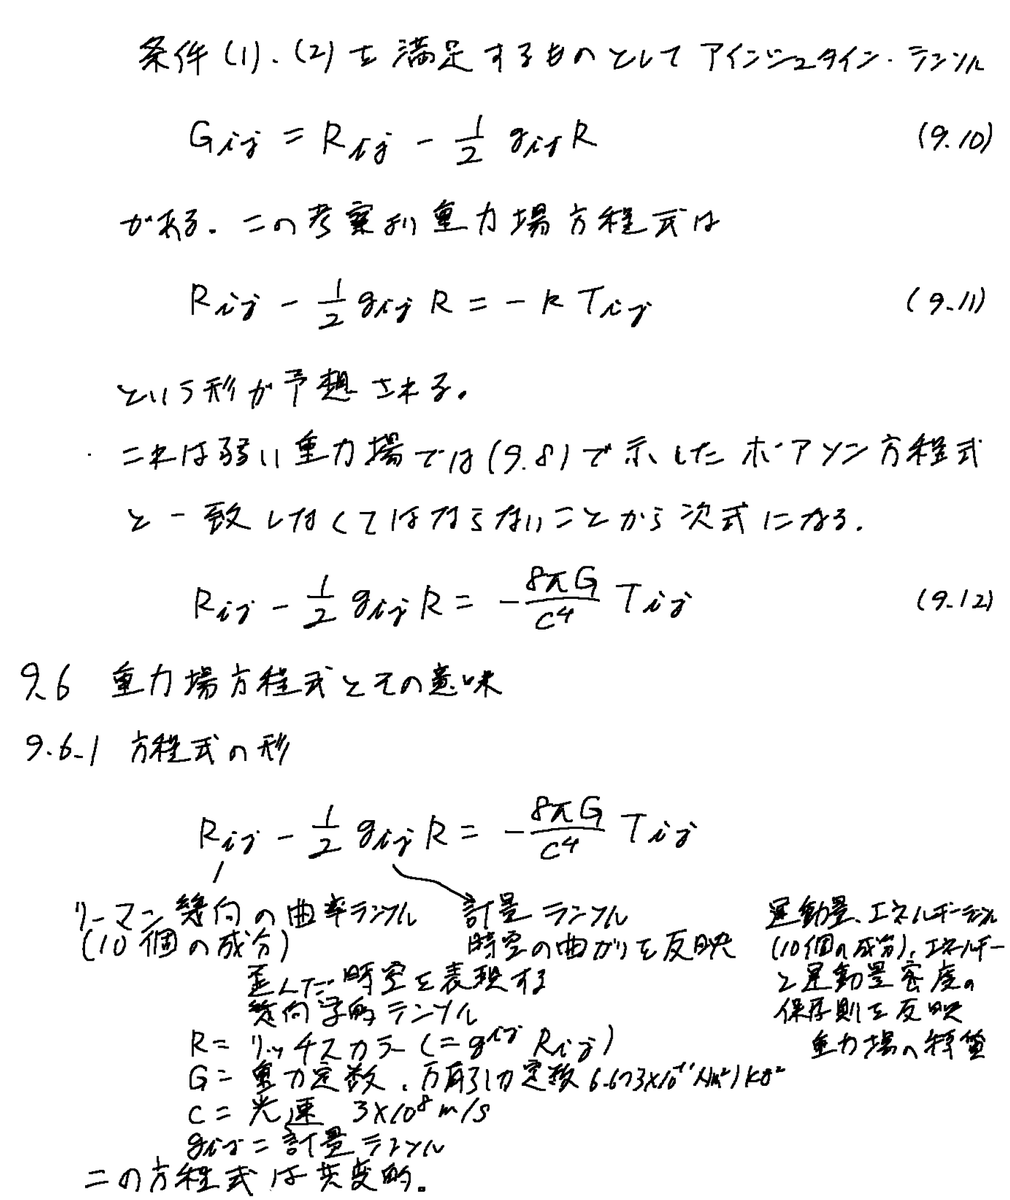 条件(1)、(2)を満足するものとしてアインシュタイン・テンソル
Gij = Rij - 1/2 gij R (9.10)
がある。この考察より重力場方程式は
Rij - 1/2 gij R = -k Tij (9.11)
という形が予想される。
これは弱い重力場では(9.8)で示したポアソン方程式
と一致しなくてはならないことから次式になる。
Rij - 1/2 gij R = -8πG/c⁴ Tij (9.12)
9.6 重力場方程式とその意味
9.6.1 方程式の形
Rij - 1/2 gij R = -8πG/c⁴ Tij
リーマン幾何の曲率テンソル
(10個の成分)
歪んだ時空を表現する
幾何学的テンソル
計量テンソル
時空の曲がりを反映
運動量、エネルギーテンソル
(10個の成分)、エネルギー
と運動量密度の
保存則を反映
重力場の特質
R = リッチスカラー (= gij Rij)
G = 重力定数、万有引力定数 6.673×10⁻¹¹ Nm²/kg²
C = 光速 3×10⁸ m/s
gij = 計量テンソル
この方程式は共変的。